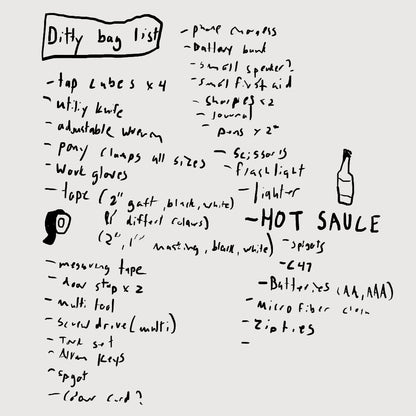 Ditty bag list
- tap cubes x 4
- utiliy knife
- adjustable wrench
- pony clamps all sizes
- work gloves
- tape (2" gaff, black, white)
(2", 1" masking, black, white)
- mesuring tape
- door stop x 2
- multi tool
- screw drive (multi)
- set
- Allen keys
- spgot
- colour card?
- phone
- Battery bank
- small speaker?
- small first aid
- sharpes x 2
- journal
- pens x 2
- scissors
- flashlight
- lighter
- HOT SAUCE
- spigots
- C47
- Batteries (AA, AAA)
- micro fiber
- zip ties
-